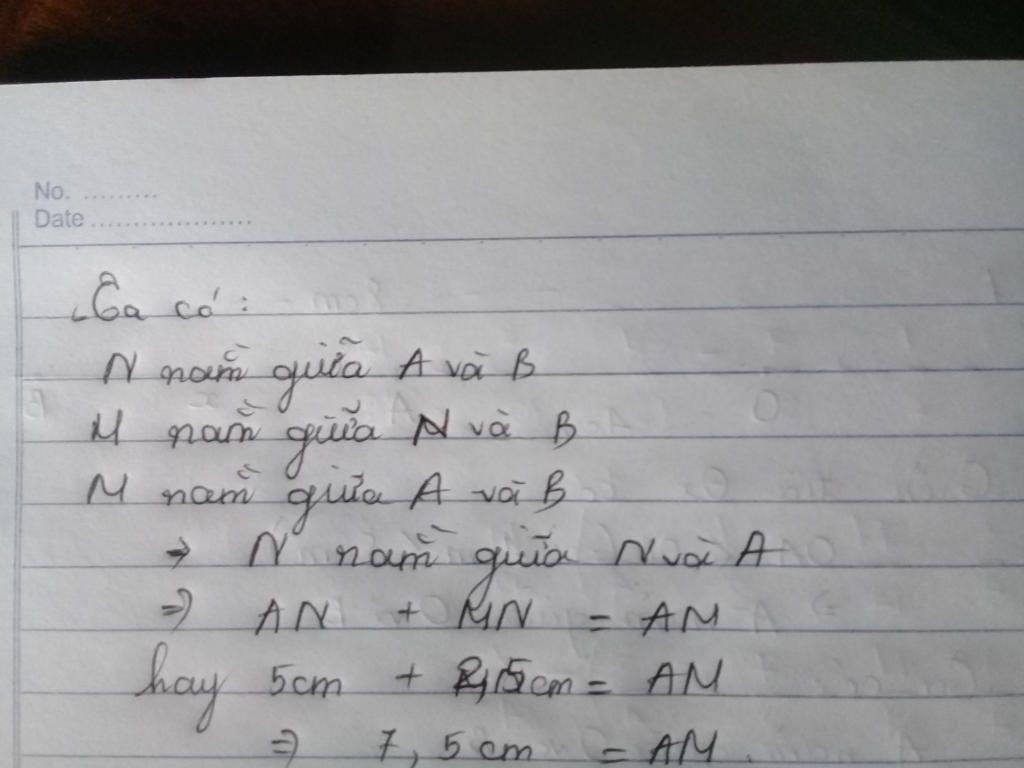 No. .........
Date ...................
Ta có:
N nằm giữa A và B
M nằm giữa N và B
M nằm giữa A và B
→ N nằm giữa N và A
⇒ AN + MN = AM
hay 5cm + 2,5cm = AM
⇒ 7,5cm = AM.